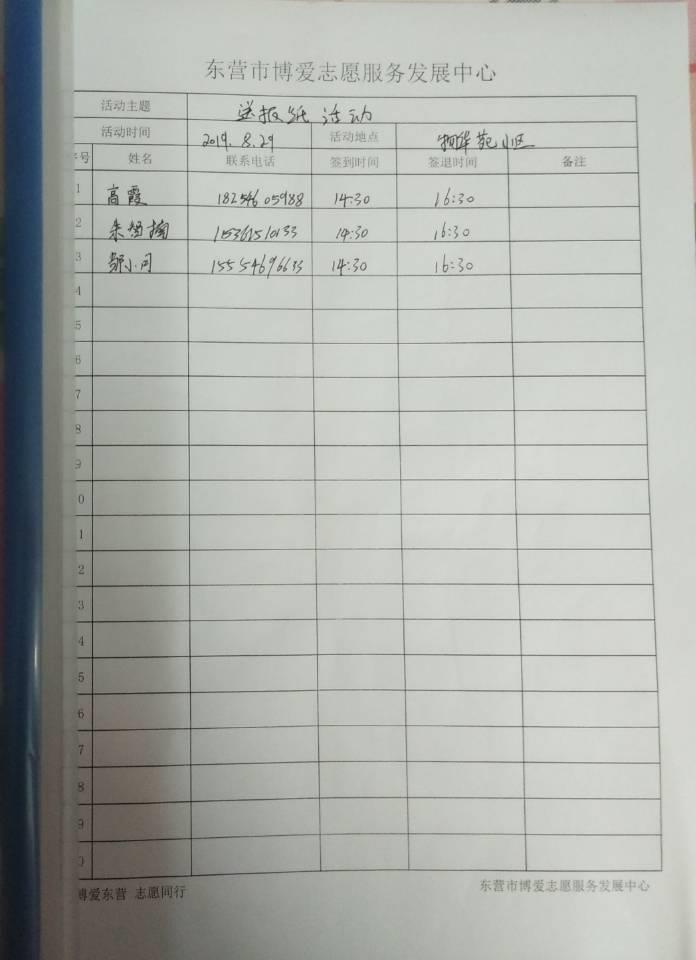 东营市博爱志愿服务发展中心
活动主题 送报纸活动
活动时间 2019.8.29 活动地点 苑小区
序号 姓名 联系电话 签到时间 签退时间 备注
1 高霞 18254605988 14:30 16:30
2 朱 14:30 16:30
3 邹小 15554696633 14:30 16:30
4
5
6
7
8
9
0
1
2
3
4
5
6
7
8
9
0
博爱东营 志愿同行 东营市博爱志愿服务发展中心